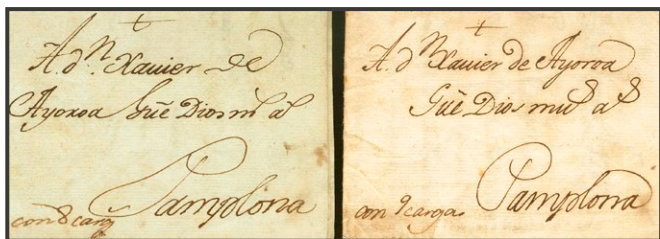 A. d.n Xavier de
Ayoroa Gūe Dios m.s a.s
Pamplona
con 8 carg.s
A. d.n Xavier de Ayoroa
Gūe Dios mu.s a.s
Pamplona
con 9 cargas